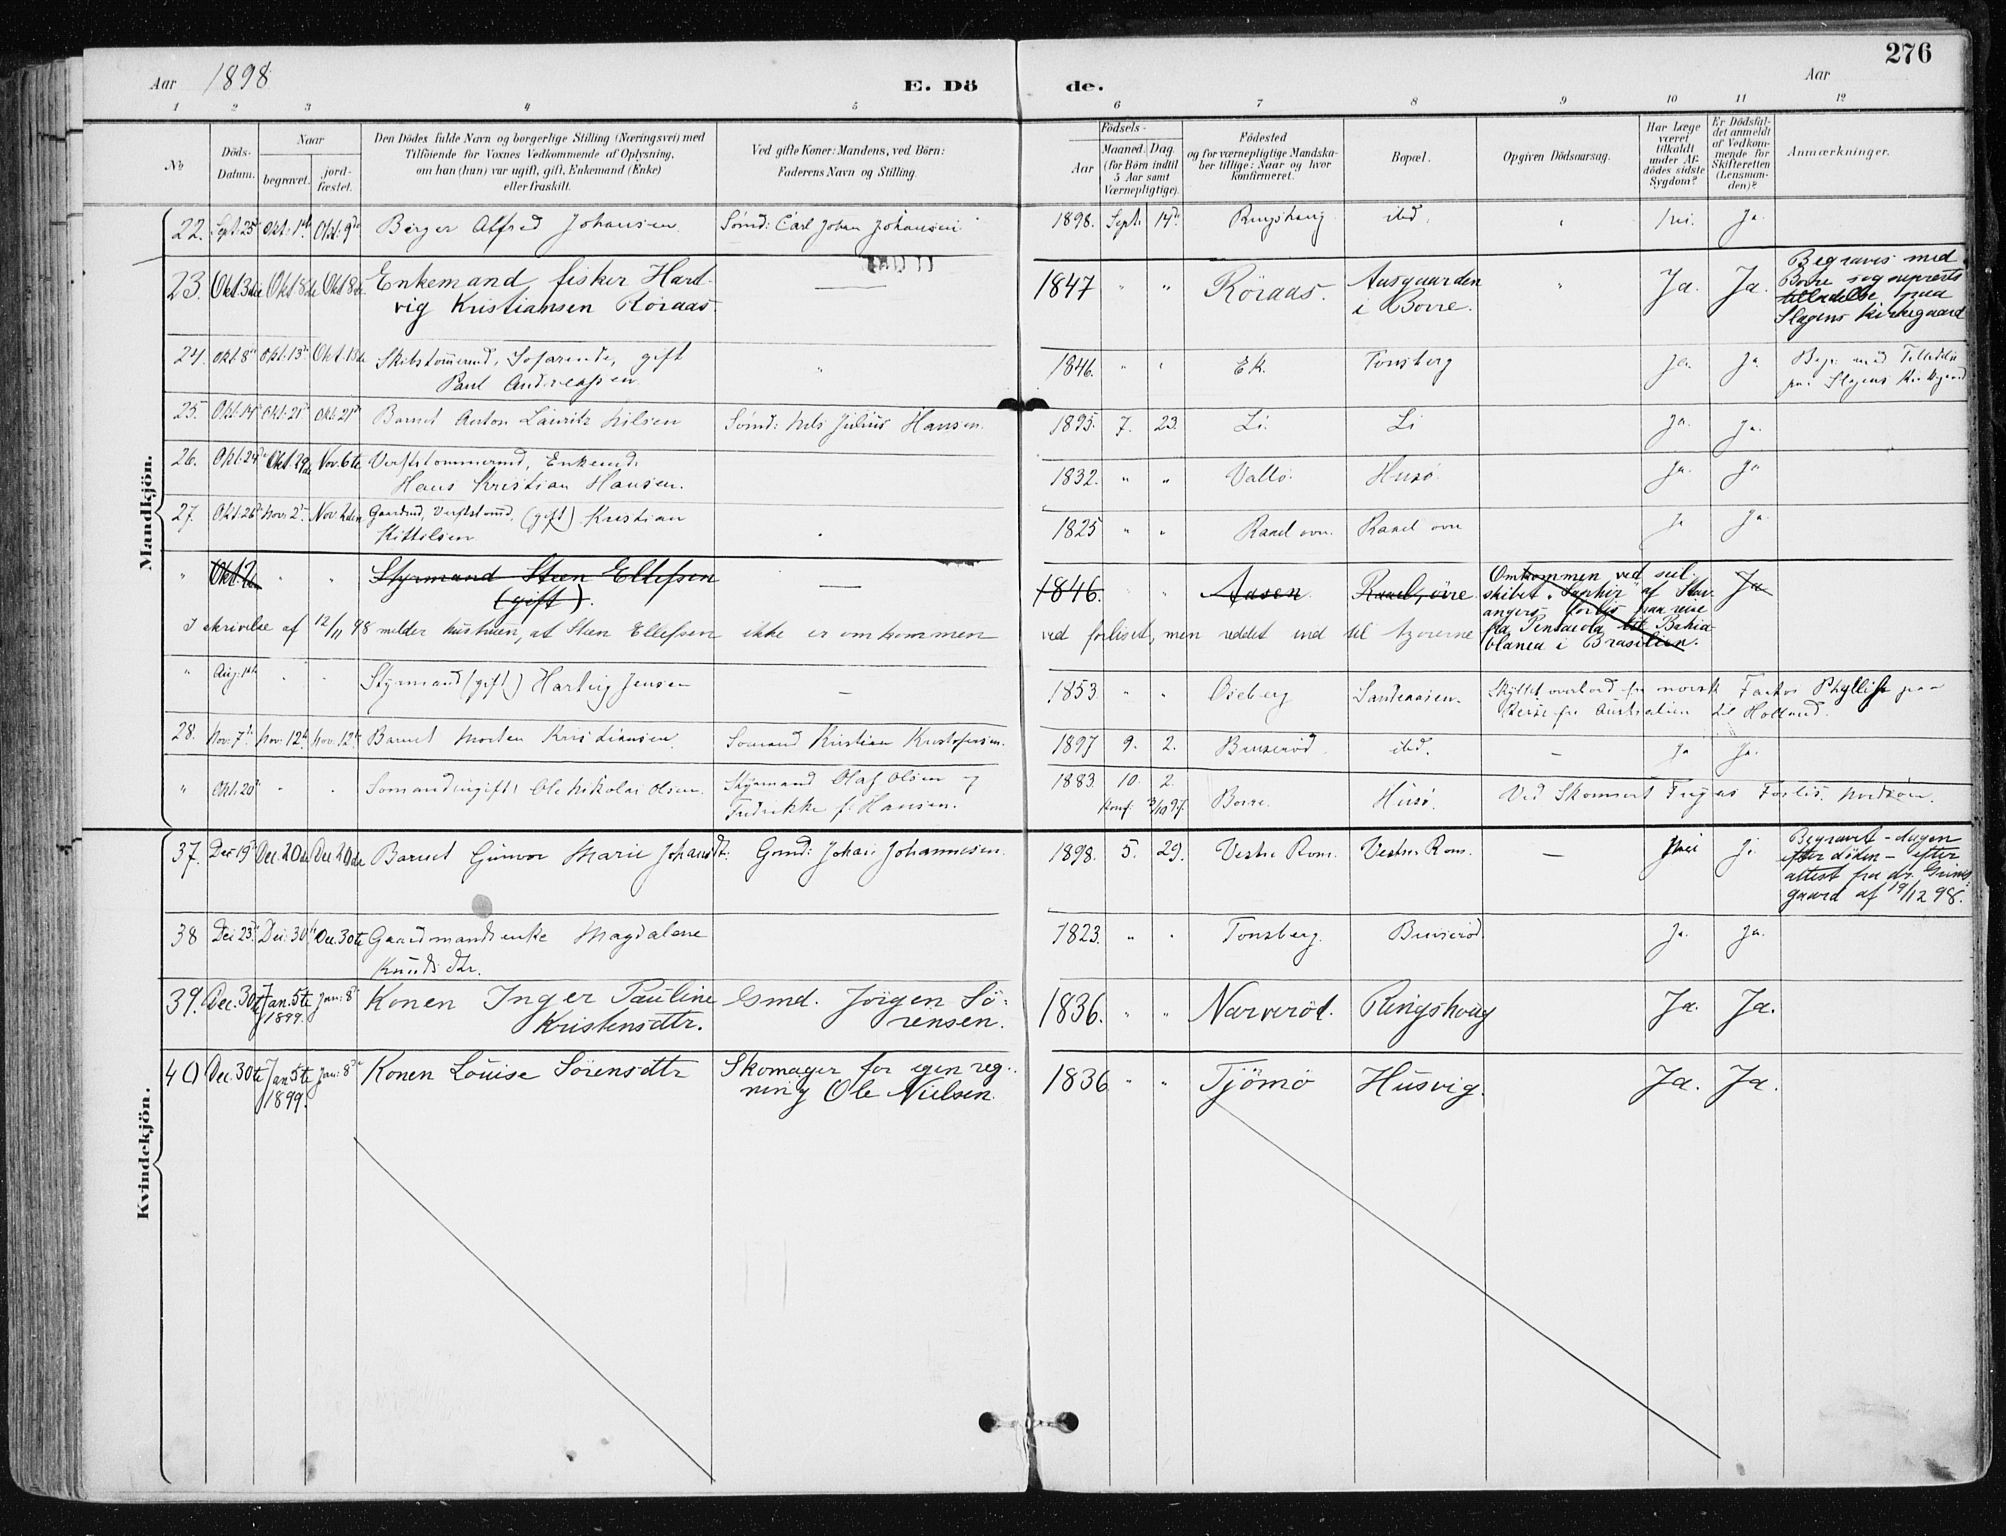 276
Aar 1898 E. Dö de. Aar
1 2 3 4 5 6 7 8 9 10 11 12
No
Döds-Datum.
Naar
begravet.
jord-fæstet.
Den Dödes fulde Navn og borgerlige Stilling (Næringsvei) med
Tilföiende for Voxnes Vedkommende af Oplysning,
om han (hun) var ugift, gift, Enkemand (Enke)
eller fraskilt.
Ved gifte Koner: Mandens, ved Börn:
Faderens Navn og Stilling.
Födsels-
Aar
Maaned. Dag.
(for Börn indtil
5 Aar samt
Værnepligtige).
Födested
og for værnepligtige Mandska-
ber tillige: Naar og hvor
konfirmeret.
Bopæl.
Opgiven Dödsaarsag.
Har Læge
været
tilkaldt
under Af-
dödes sidste
Sygdom?
Er Dödsfal-
det anmeldt
af Vedkom-
mende for
Skifteretten
(Lensman-
den)?
Anmærkninger.
Mandkjön.
22. Sept. 25 Okt: 1st Okt: 9de Birger Alfred Johansen. Sömd: Carl Johan Johansen 1898. Sept. 14de Ringshoug ibd. " Nei. Ja.
23. Okt 3die Okt 8de Okt 8de Enkemand, fisker Hart-
vig Kristiansen Röraas. — 1847 " " Röraas. Aasgaarden
i Borre. " Ja. Ja. Begraves med
Borre sogneprests
tilladelse paa
Slagens kirkegaard
24. Okt 8de Okt. 13de Okt. 13de Skibstömmermd, Logerende, gift
Paul Andreassen " 1846. " " Ek. Tönsberg Ja. Ja. Begr. med Tilladelse
paa Slagens Kirkegaard
25. Okt. 14de Okt. 21de Okt. 21de Barnet Anton Lauritz Nilsen Sömd: Nils Julius Hansen. 1895. 7. 23. Li. Li Ja. Ja.
26. Okt. 24de Okt. 29de Nov. 6te Verftstömmermd, Enkemd.
Hans Kristian Hansen. 1832. " " Vallö. Husö. Ja. Ja
27. Okt. 26de Nov. 2de Nov 2den Gaardmd, Verftstömmd, (gift) Kristian
Kittilsen 1825 " " Raael övre. Raael övre Ja Ja.
" Okt. 2. " " Styrmand Steen Ellefsen
(gift). — 1846. " " Aasen. Raael, övre. Omkommen ved seil-
skibet "Saphir" af Stav-
angers forlis paa reise
fra Pensacola til Bahia
blanca i Brasilien. Ja
I skrivelse af 12/11 98 melder hustruen, at Steen Ellefsen ikke er omkommen ved forliset, men reddet ind til Azorerne
" Aug: 1ste " " Styrmand (gift) Hartvig Jensen — 1853 " " Oseberg Sandeaasen. Skyllet overbord fra norsk Fartöi Phyllis paa
Reise fra Australien til Holland.
28. Nov. 7de Nov. 12te Nov. 12te Barnet Morten Kristiansen. Sömand Kristian Kristofersen. 1897 9. 2. Bruseröd. ibd. — Ja Ja.
" Okt: 20de " " Sömand ugift: Ole Nikolai Olsen. Styrmand Olaf Olsen og
Fredrikke f: Hansen. 1883. 10. 2. Konf. Borre. Husö. Ved Skonnert Frejas Forlis. Nordsöen.
Kvindekjön.
37. Dec 19de Dec. 20de Dec 20de Barnet Gunvor Marie Johansdtr. Gmd: Johan Johannesen. 1898. 5. 29. Vestre Rom. Vestre Rom. — Nei Ja Begravet - dagen
efter döden - efter
attest fra dr. Grims-
gaard af 19/12 98.
38 Dec 23de Dec. 30te Dec. 30te Gaardmandsenke Magdalene
Knudsdtr. 1823. " " Tönsberg. Bruseröd. Ja. Ja.
39. Dec. 30te Jan. 5te
1899. Jan: 8de Konen Inger Pauline
Kristensdtr. Gmd. Jörgen Sö-
rensen. 1836. " " Narveröd. Ringshoug Ja. Ja.
40 Dec. 30te Jan 5te
1899. Jan: 8de Konen Louise Sörensdtr Skomager for egen reg-
ning Ole Nielsen. 1836 " " Tjömö Husvig. Ja. Ja.